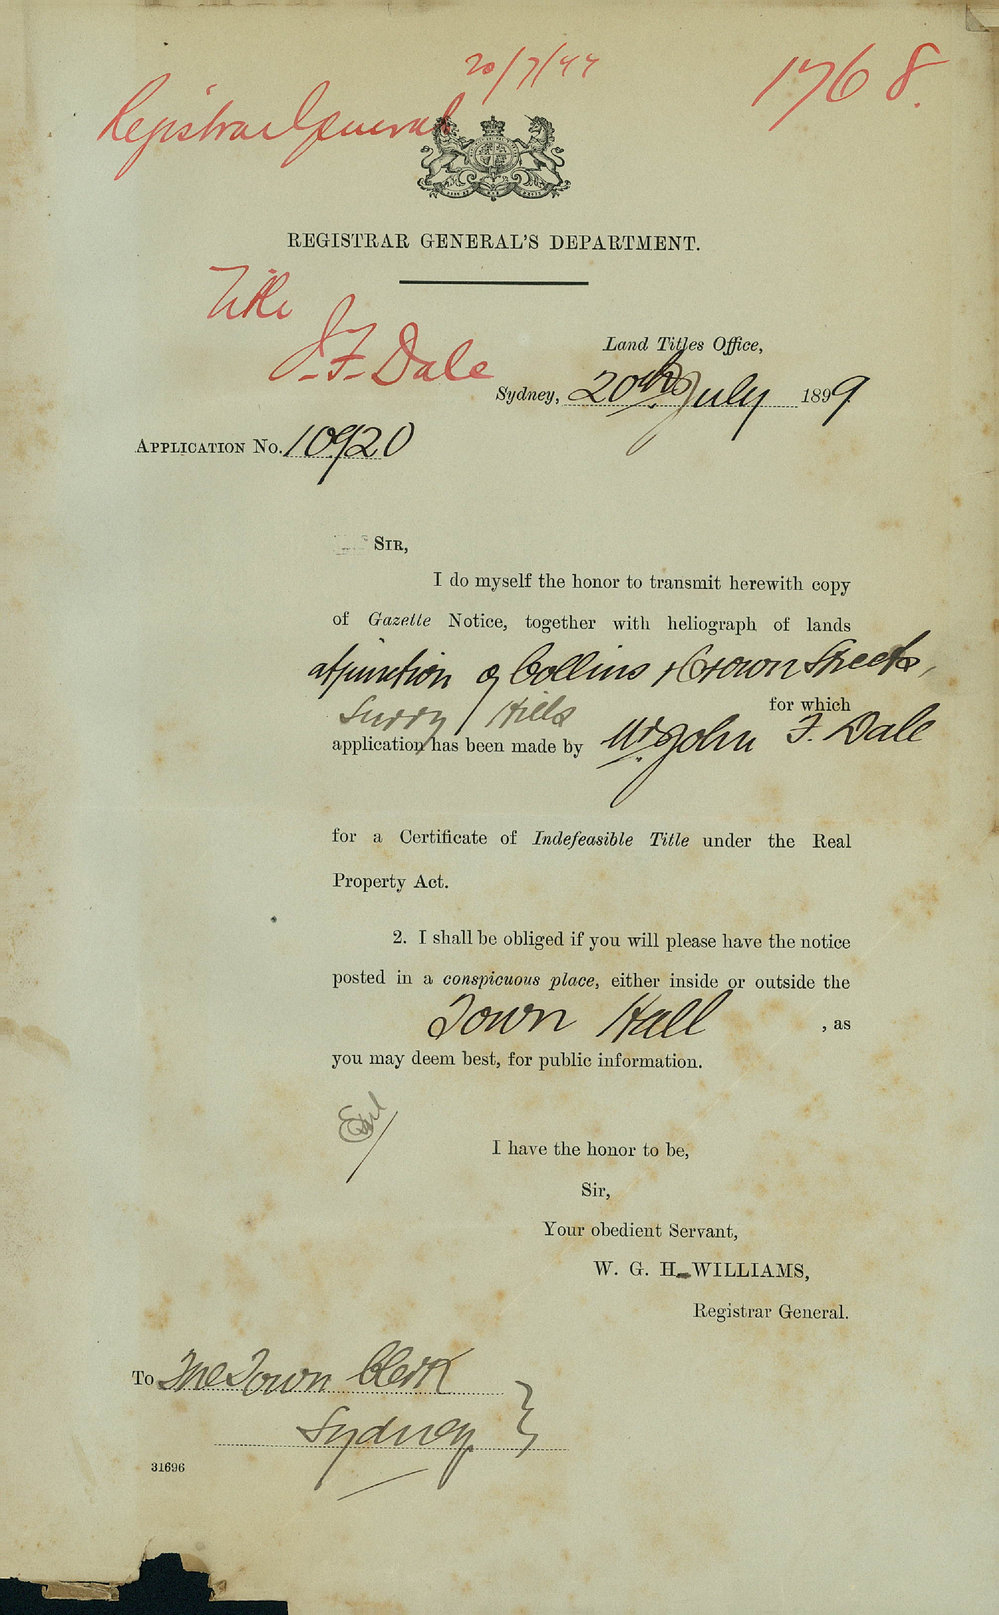 20/7/99
1768.
Registrar General
REGISTRAR GENERAL'S DEPARTMENT.
Title
J. F. Dale
Land Titles Office,
Sydney, 20th July 1899
APPLICATION No. 10920
SIR,
I do myself the honor to transmit herewith copy
of Gazette Notice, together with heliograph of lands
at junction of Collins & Crown Streets,
Surry Hills for which
application has been made by Mr. John F. Dale
for a Certificate of Indefeasible Title under the Real
Property Act.
2. I shall be obliged if you will please have the notice
posted in a conspicuous place, either inside or outside the
Town Hall , as
you may deem best, for public information.
I have the honor to be,
Sir,
Your obedient Servant,
W. G. H. WILLIAMS,
Registrar General.
To The Town Clerk
Sydney
31696